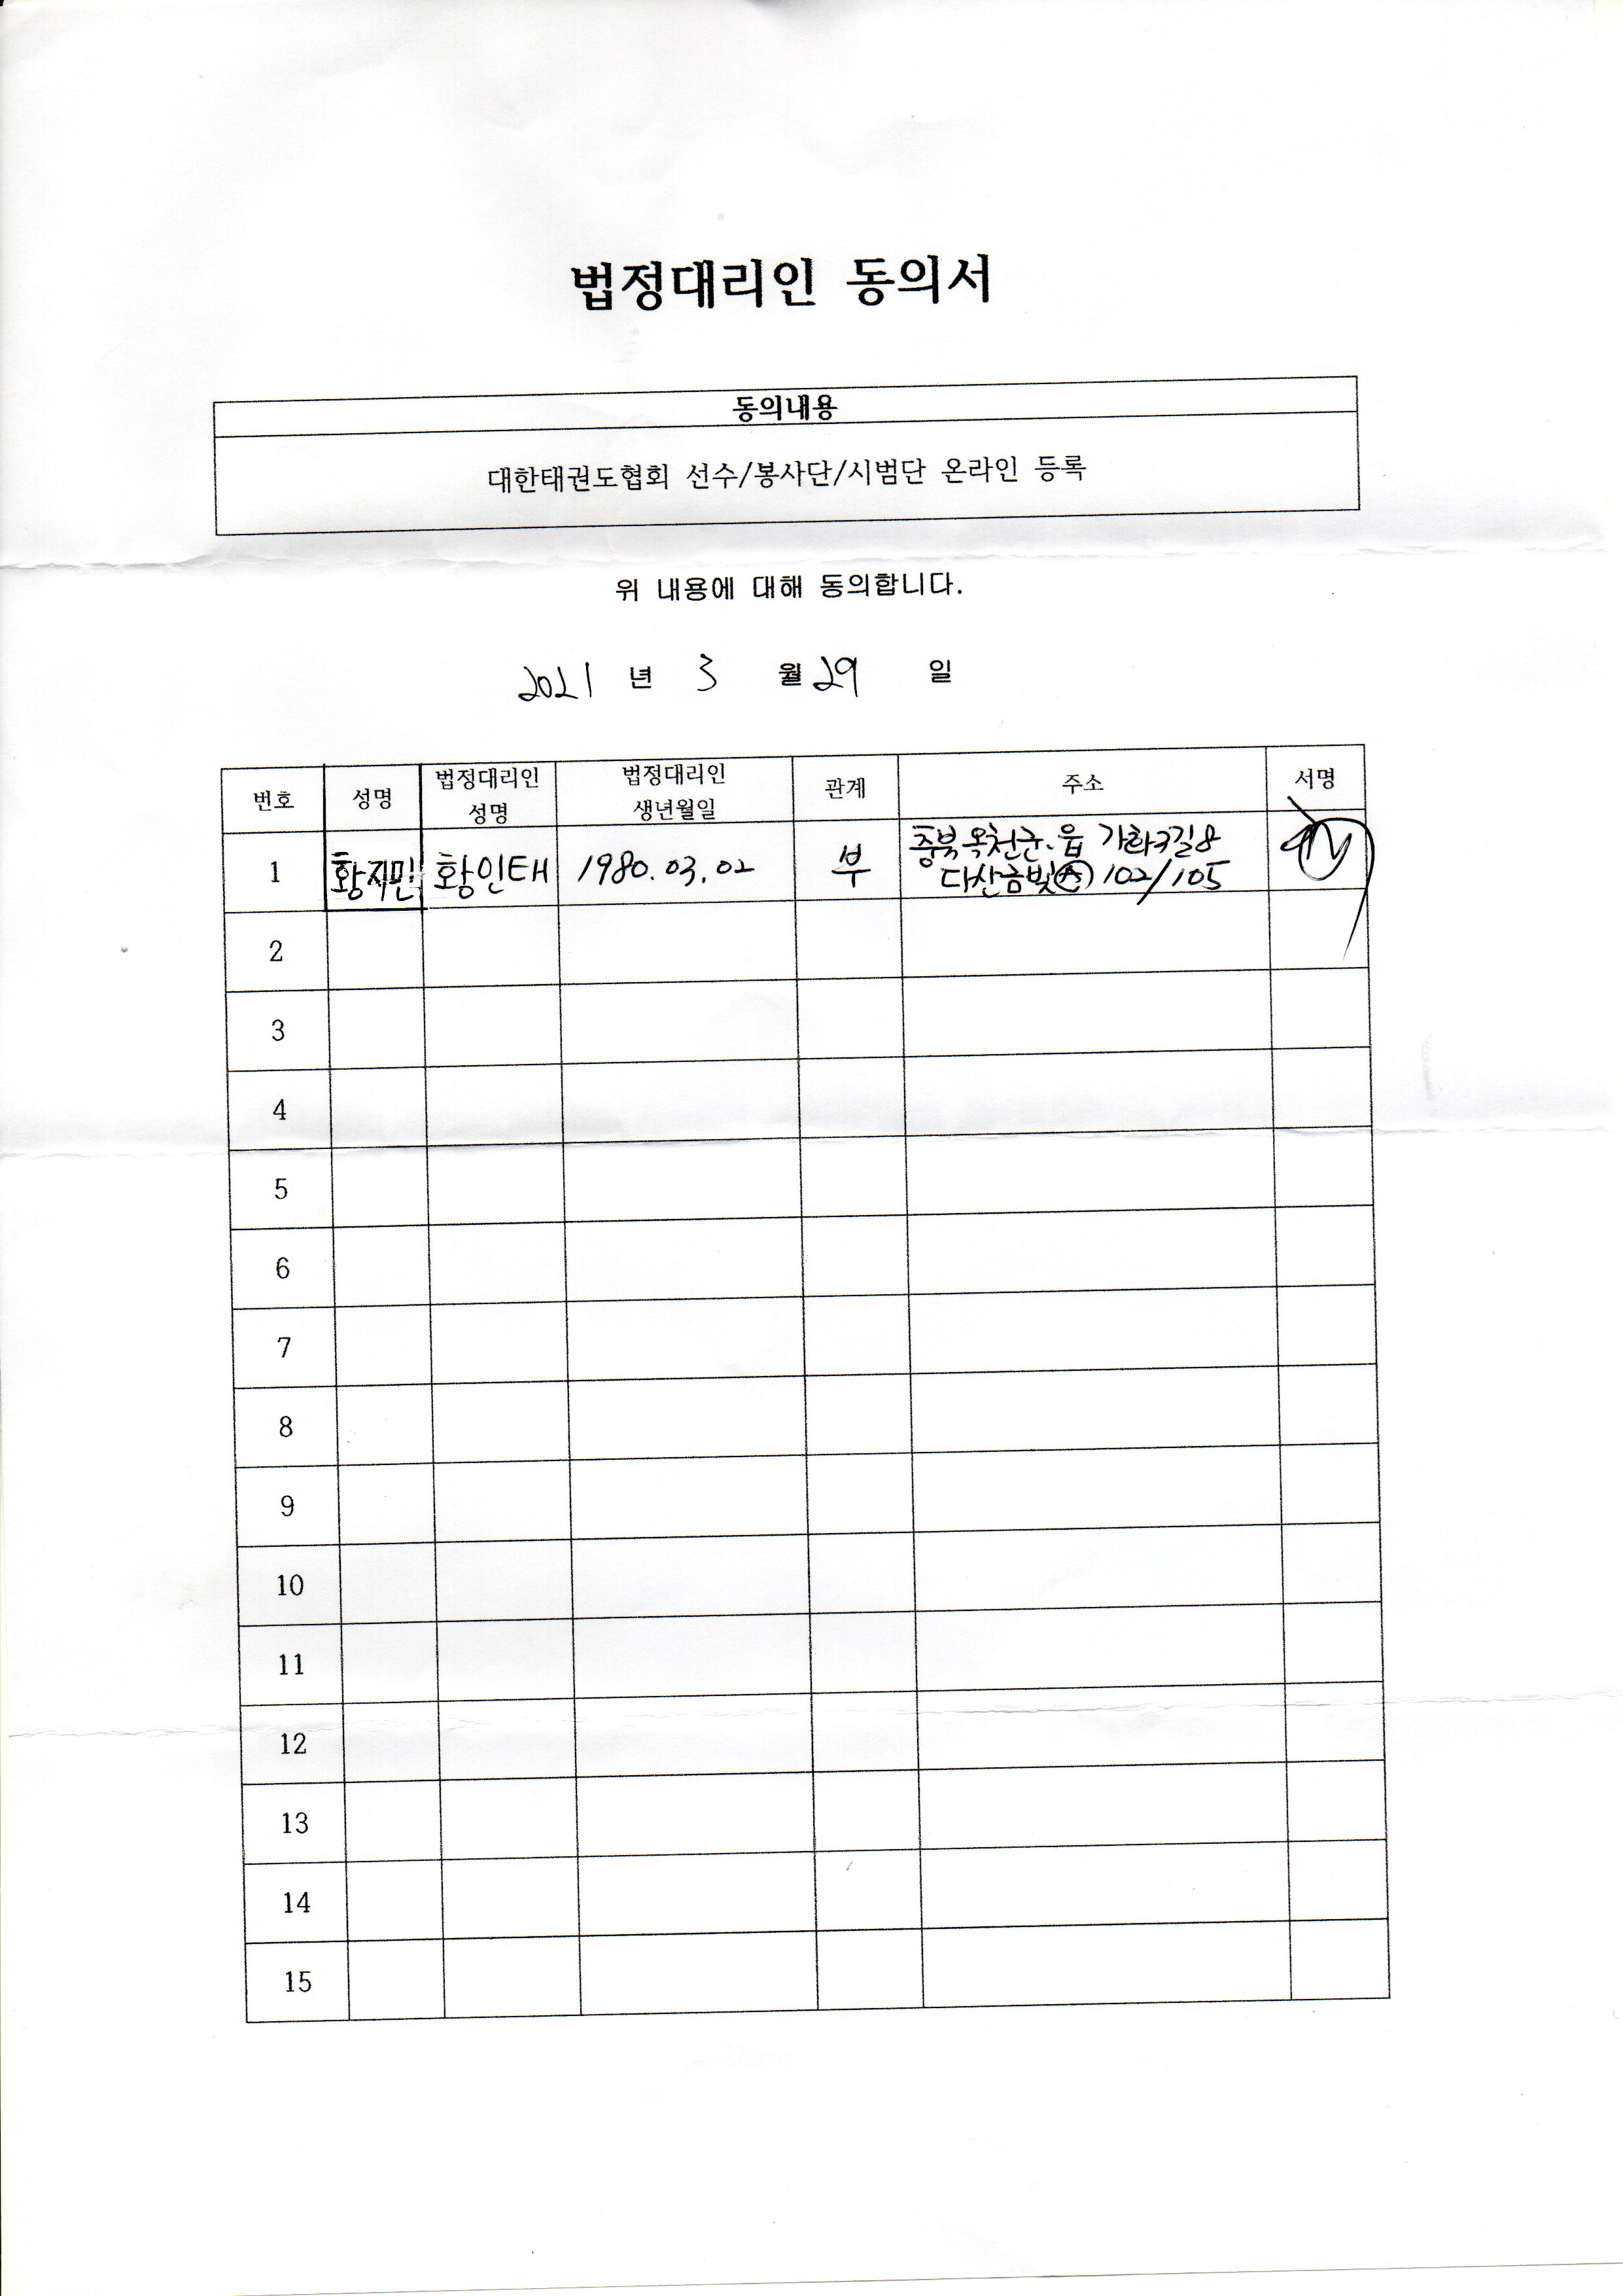 법정대리인 동의서
동의내용
대한태권도협회 선수/봉사단/시범단 온라인 등록
위 내용에 대해 동의합니다.
2021 년 3 월 29 일
번호 성명 법정대리인 성명 법정대리인 생년월일 관계 주소 서명
1 황지민 황인태 1980.03.02 부 충북옥천군.읍 가화3길8
다산금빛㉧ 102/105
2
3
4
5
6
7
8
9
10
11
12
13
14
15